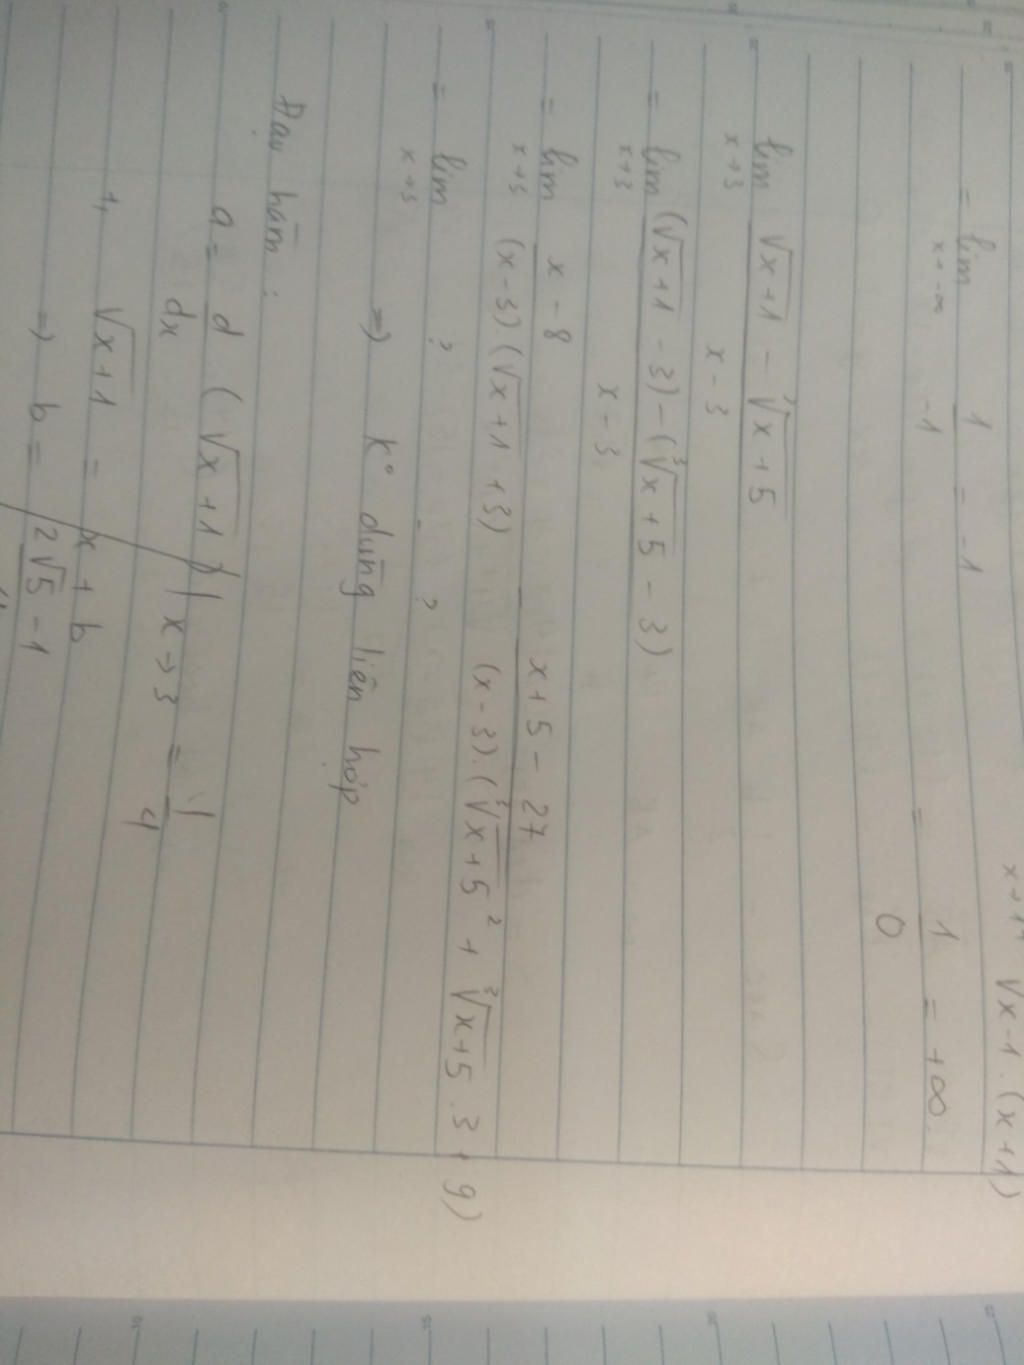 x→1⁺ √x-1 . (x+1)
= lim 1/-1 = -1
x→-∞
= 1/0 = +∞
lim (√x+1 - ³√x+5)/(x-3)
x→3
= lim ((√x+1 - 3) - (³√x+5 - 3))/(x-3)
x→3
= lim (x-8)/((x-3)(√x+1 +3)) - (x+5-27)/((x-3).(³√x+5² + ³√x+5 .3 + 9)
x→3
= lim ? - ?
x→3
=> k° dùng liên hợp
Đạo hàm :
a = d/dx (√x+1)|x→3 = 1/4
√x+1 = x + b
=> b = 2√5 - 1